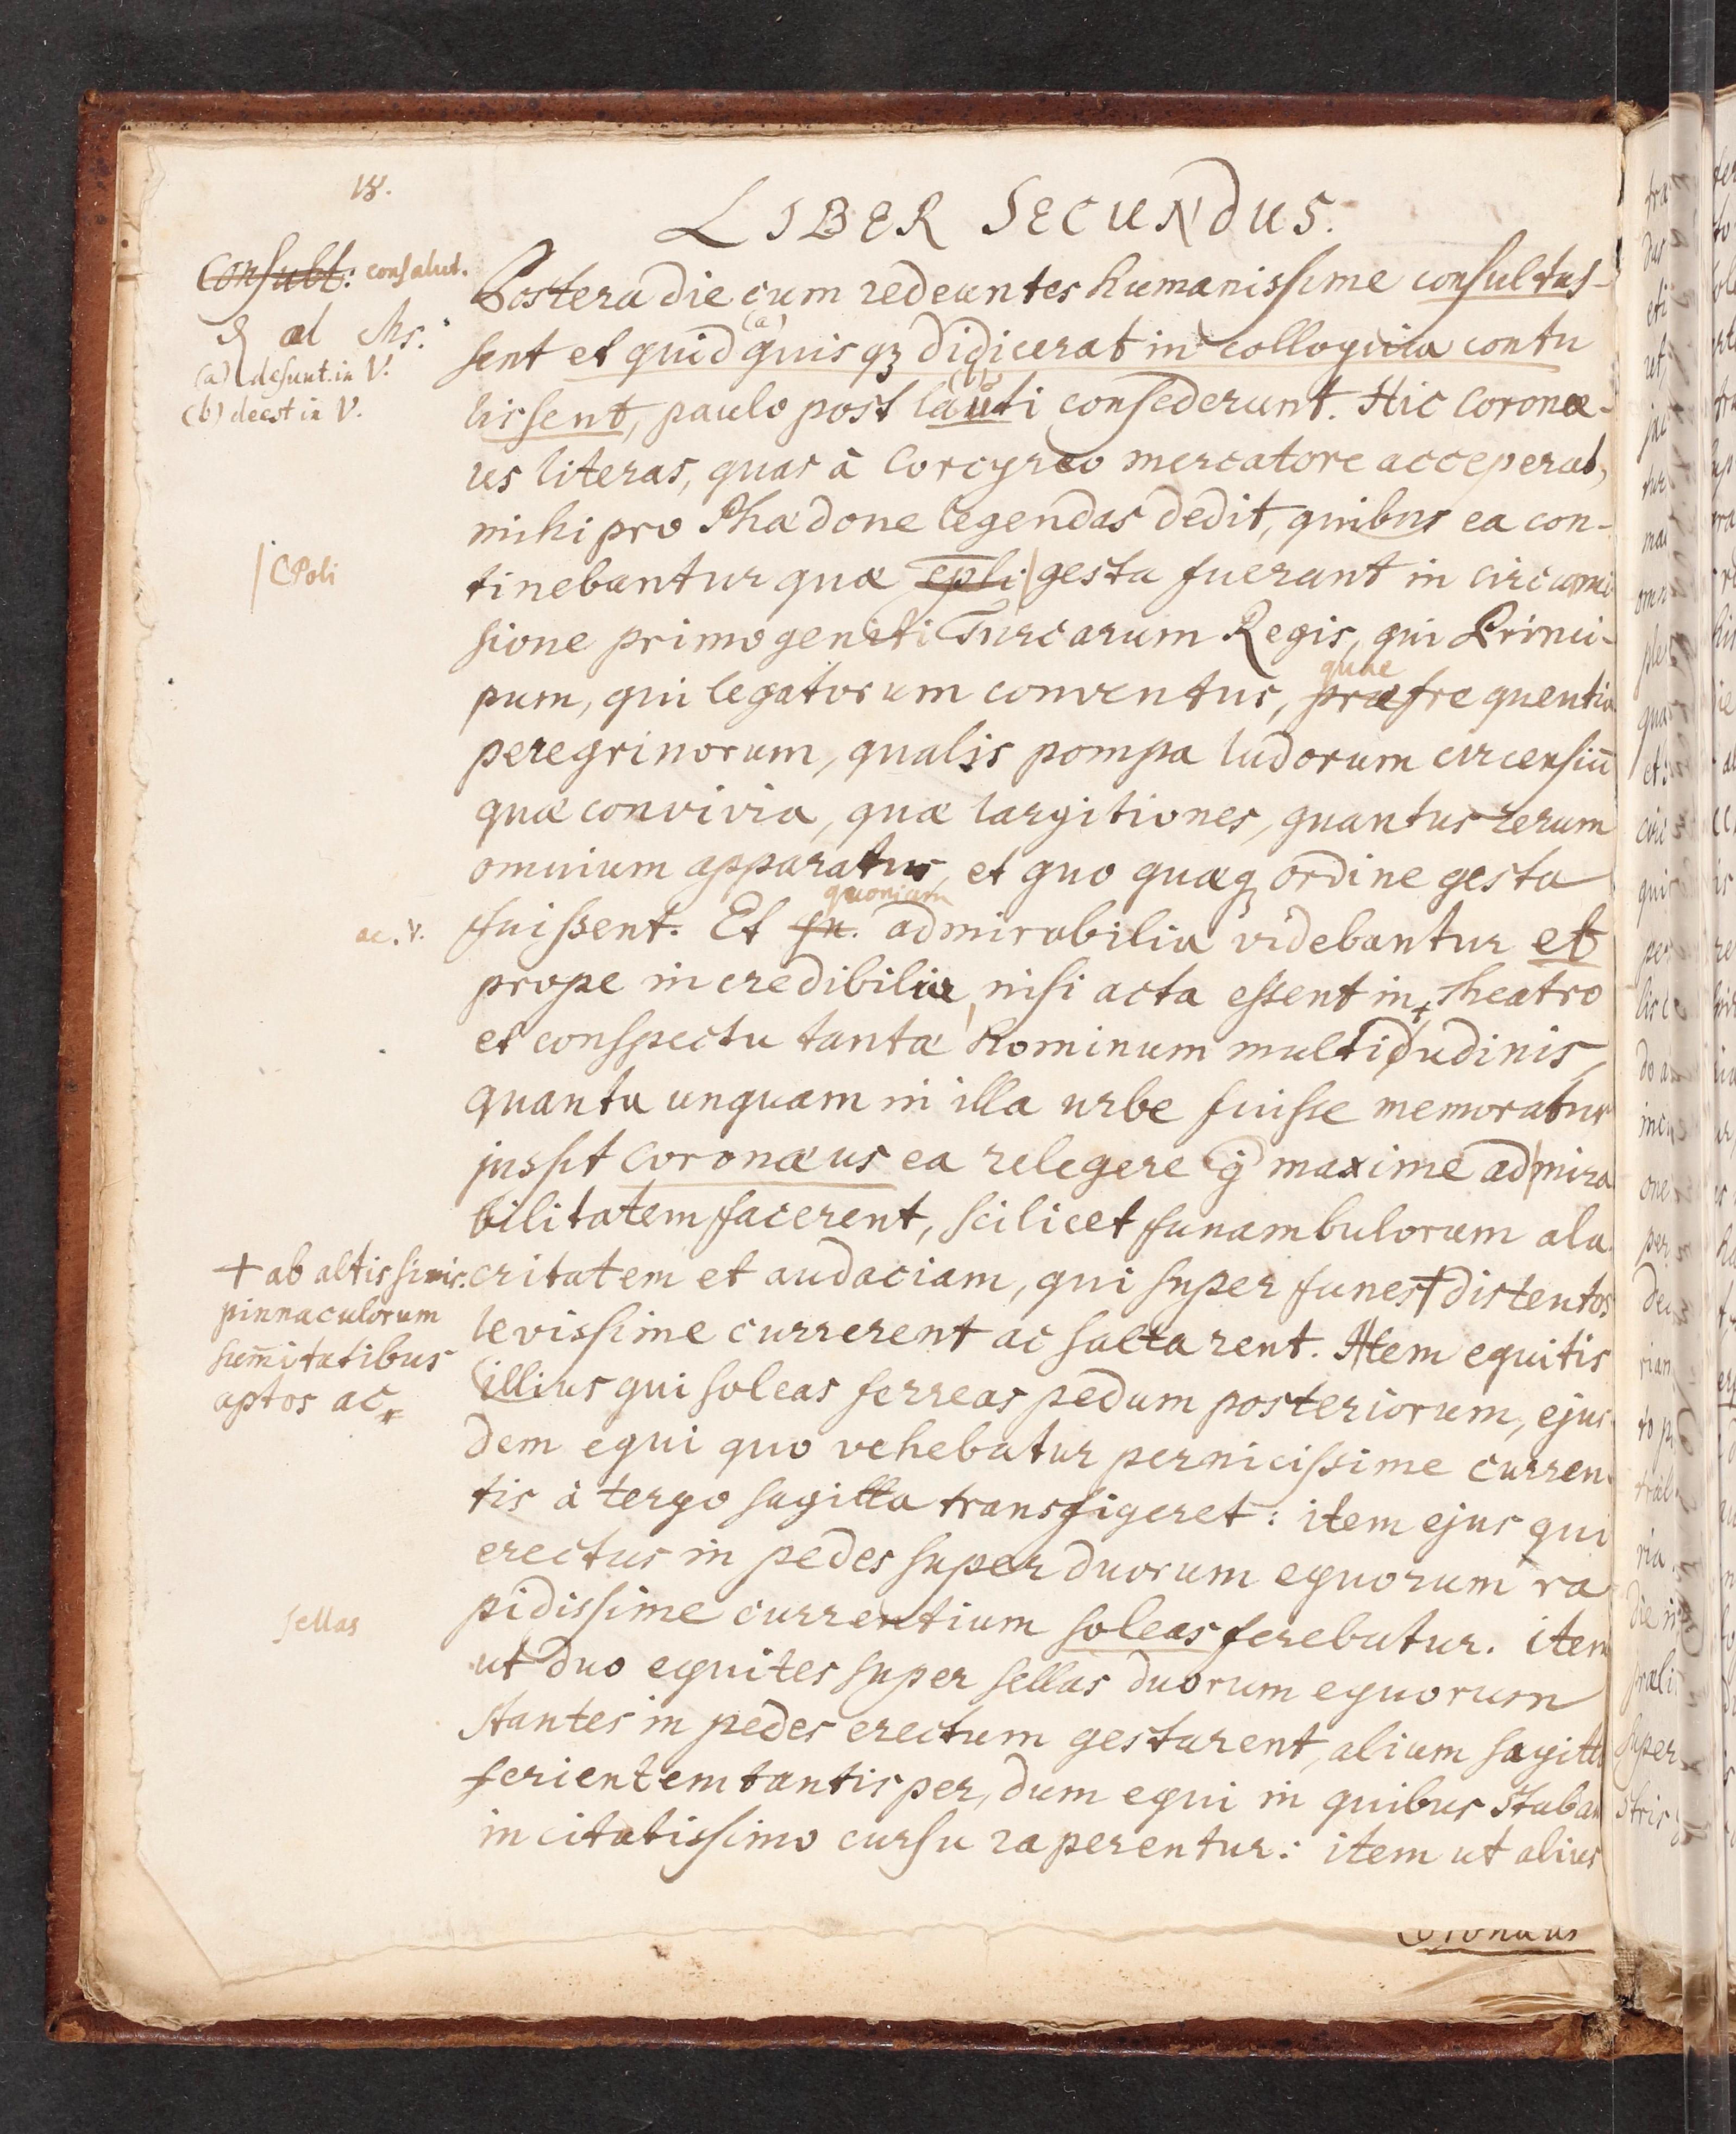 18.
LIBER SECUNDUS.
Consult: consalut.
& al Ms.
(a) desunt in V.
(b) deest in V.
Postera die cum redeuntes humanissime consultas-
(a)
sent et quid quisqz didicerat in colloquia contu
(b)
lissent, paulo post lauti consederunt. Hic Coronæ-
us literas, quas à Corcyreo mercatore acceperat,
mihi pro Phædone legendas dedit, quibus ea con-
CPoli
tinebantur quæ epli gesta fuerant in circumci
sione primogeniti Turcarum Regis, qui Princi-
quae
pum, qui legatorum conventus, præ frequentia
peregrinorum, qualis pompa ludorum circensiū
quæ convivia, quæ largitiones, quantus rerum
omnium apparatus, et quo quæqz ordine gesta
quoniam
ac. V.
fuissent. Et qu. admirabilia videbantur et
prope incredibilia, nisi acta essent in theatro
et conspectu tantæ hominum multidudinis,
quanta unquam in illa urbe fuisse memoratur
jussit Coronæus ea relegere q̄ maxime admira
bilitatem facerent, scilicet funambulorum ala
+ ab altissimis
pinnaculorum
sum̄itatibus
aptos ac
critatem et audaciam, qui super funes + distentos
levissime currerent ac saltarent. Item equitis
illius qui soleas ferreas pedum posteriorum, ejus
dem equi quo vehebatur pernicissime curren
tis à tergo sagitta transfigeret: item ejus qui
erectus in pedes super duorum equorum ra
sellas
pidissime currentium soleas ferebatur. item
ut duo equites super sellas duorum equorum
stantes in pedes erectum gestarent, alium sagitta
ferientem tantisper, dum equi in quibus staban
incitatissimo cursu raperentur: item ut alius
Coronæus